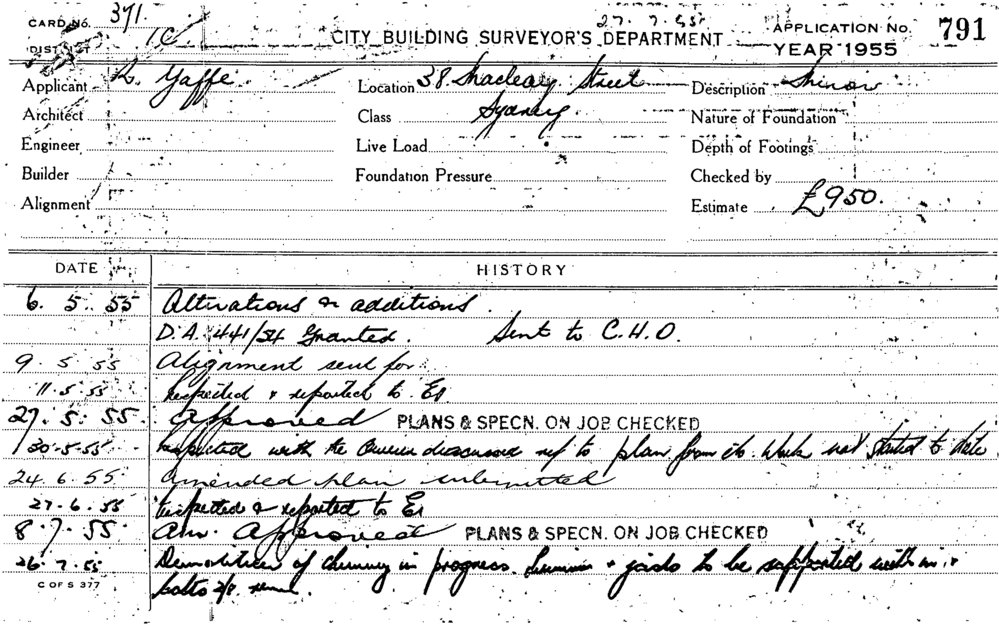 CARD No. 371.
27. 7. 55
DISTRICT
CITY BUILDING SURVEYOR'S DEPARTMENT
APPLICATION No. 791
YEAR 1955
Applicant R. Yaffe.
Location 38 Macleay Street
Description Minor
Architect
Class Sydney
Nature of Foundation
Engineer
Live Load
Depth of Footings
Builder
Foundation Pressure
Checked by
Alignment
Estimate £950.
DATE
HISTORY
6. 5. 55 Alterations & additions.
D.A. 441/54 Granted. Sent to C.H.O.
9. 5 55 Alignment sent for
11.5.55 Inspected & reported to
27. 5. 55 Approved PLANS & SPECN. ON JOB CHECKED
30-5-55 Inspected with the Owner discussed ref to plan from Work not started to date
24. 6. 55 Amended plan submitted
27. 6. 55 Inspected & reported to
8 7. 55 Am. Approved PLANS & SPECN. ON JOB CHECKED
26. 7. 55 Demolition of chimney in progress. to be supported with
C OF S 377
bolts